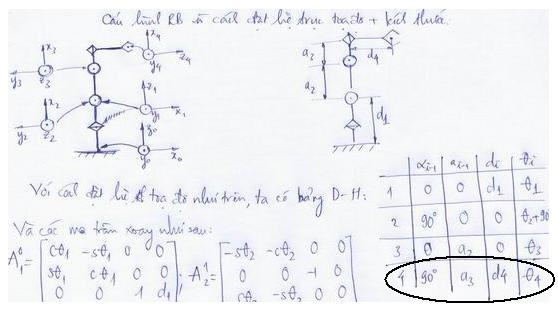 Cấu hình RB và cách đặt hệ trục toạ độ + kích thước:
x3 x4
z4
y3 z3 y4
x2 z1
y1 x1
y2 z2 z0
y0 x0
a3 d4
a2
d1
Với cách đặt hệ toạ độ như trên, ta có bảng D-H:
αi-1 ai-1 di θi
1 0 0 d1 θ1
2 90° 0 0 θ2+90
3 0 a2 0 θ3
4 90° a3 d4 θ4
Và các ma trận xoay như sau:
A⁰₁ = [cθ1 -sθ1 0 0
sθ1 cθ1 0 0
0 0 1 d1
; A¹₂ = [-sθ2 -cθ2 0 0
0 0 -1 0
-sθ2 0 0